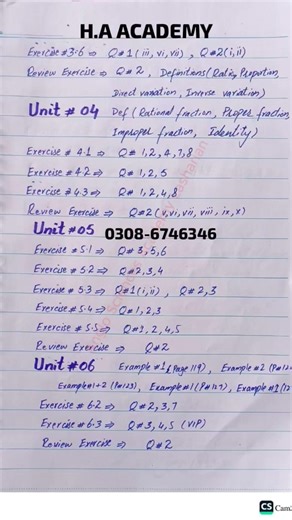 H.A ACADEMY
Exercise # 3.6 ⇒ Q # 1 (iii, vi, vii) , Q # 2 (i, ii)
Review Exercise ⇒ Q # 2 , Definitions (Ratio, Proportion,
Direct variation, Inverse variation)
Unit # 04 Def (Rational fraction, Proper fraction,
Improper fraction, Identity)
Exercise # 4.1 ⇒ Q # 1, 2, 4, 7, 8
Exercise # 4.2 ⇒ Q # 1, 2, 5
Exercise # 4.3 ⇒ Q # 1, 2, 4, 8
Review Exercise ⇒ Q # 2 (v, vi, vii, viii, ix, x)
Unit # 05 0308-6746346
Exercise # 5.1 ⇒ Q # 3, 5, 6
Exercise # 5.2 ⇒ Q # 2, 3, 4
Exercise # 5.3 ⇒ Q # 1 (i, ii) , Q # 2, 3
Exercise # 5.4 ⇒ Q # 1, 2, 3
Exercise # 5.5 ⇒ Q # 1, 2, 4, 5
Review Exercise ⇒ Q # 2
Unit # 06 Example # 1 (Page 119) , Example # 2 (P #
Example # 1+2 (P # 123) , Example # 1 (P # 127) , Example # 1
Exercise # 6.2 ⇒ Q # 2, 3, 7
Exercise # 6.3 ⇒ Q # 3, 4, 5 (VIP)
Review Exercise ⇒ Q # 2
CS Cam